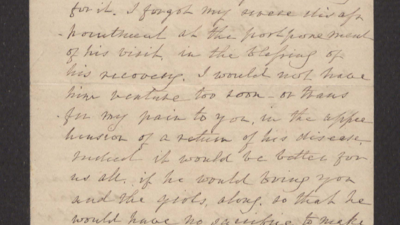 for it. I forgot my severe disap
-pointment at the postponement
of his visit, in the blessing of
his recovery. I would not have
him venture too soon - or trans
-fer my pain to you, in the appre
hension of a return of his disease.
Indeed it would be better for
us all, if he would bring you
and the girls, along, so that he
would have no sacrifice to make